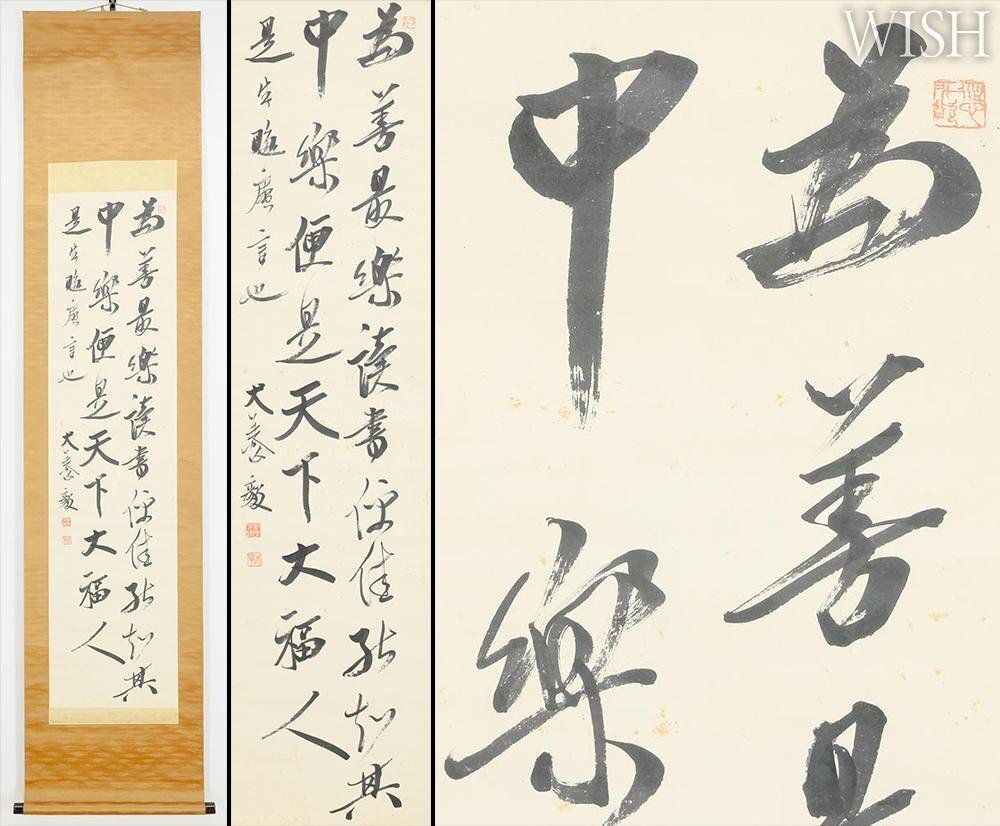 為善最樂讀書便佳能知其
中樂便是天下大福人
是朱晦庵言也 犬養毅
為善最樂讀書便佳能知其
中樂便是天下大福人
是朱晦庵言也 犬養毅
WISH
為善
中樂